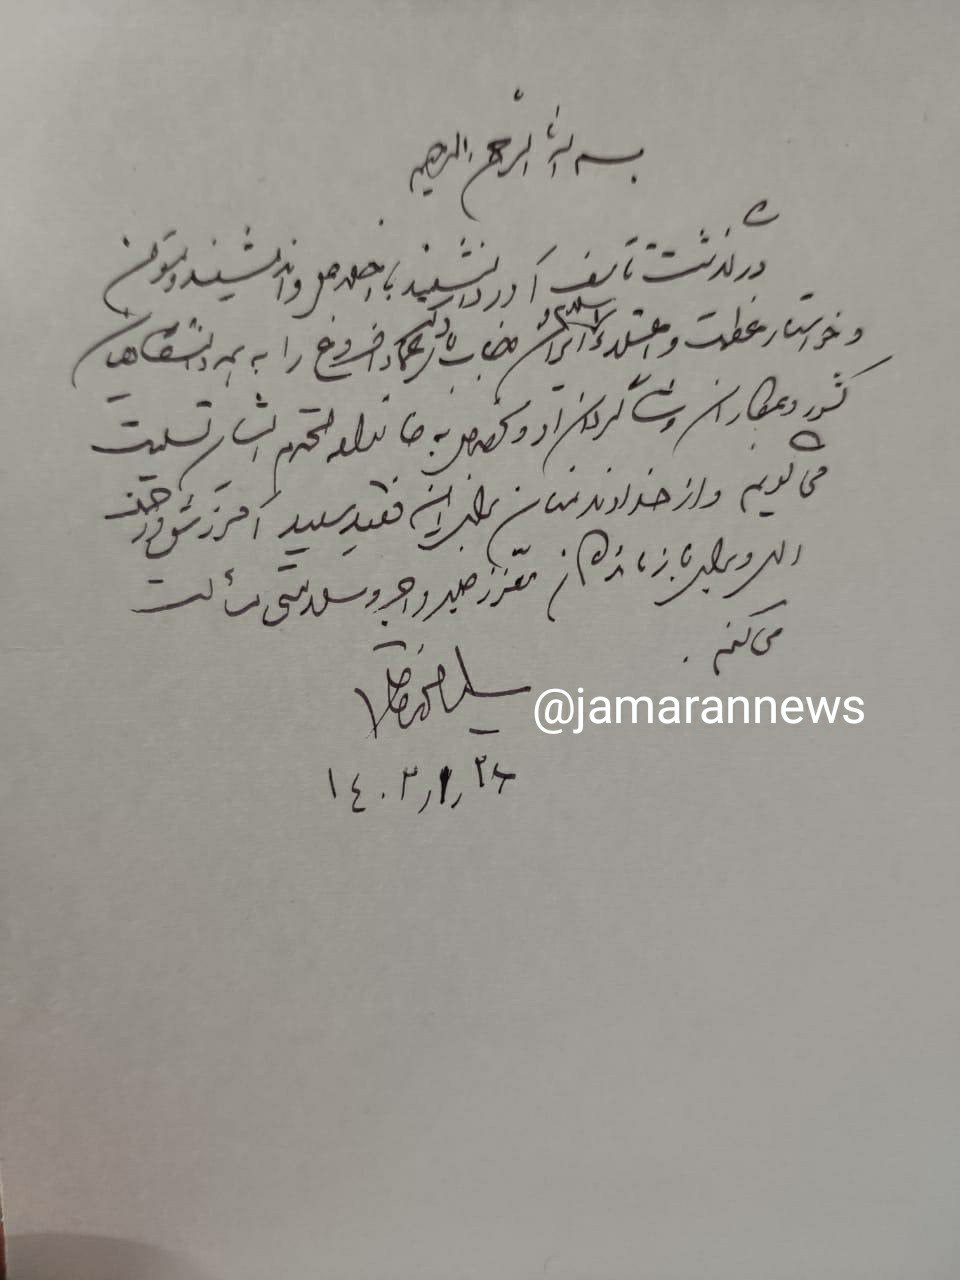 بسم الله الرحمن الرحیم
درگذشت تأسف آور دانشمند با اخلاص و اندیشمند و متین
و خواستار عظمت و اعتلاء اسلام و ایران جناب دکتر عماد افروغ را به همه دانشگاهیان
کشور و همکاران و شاگردان او و بخصوص به خانواده محترم ایشان تسلیت
می گویم و از خداوند منان برای این فقید سعید آمرزش و رحمت
الهی و برای بازماندگان معزز صبر و اجر و سلامتی مسألت
می کنم.
سید محمد خاتمی
@jamarannews